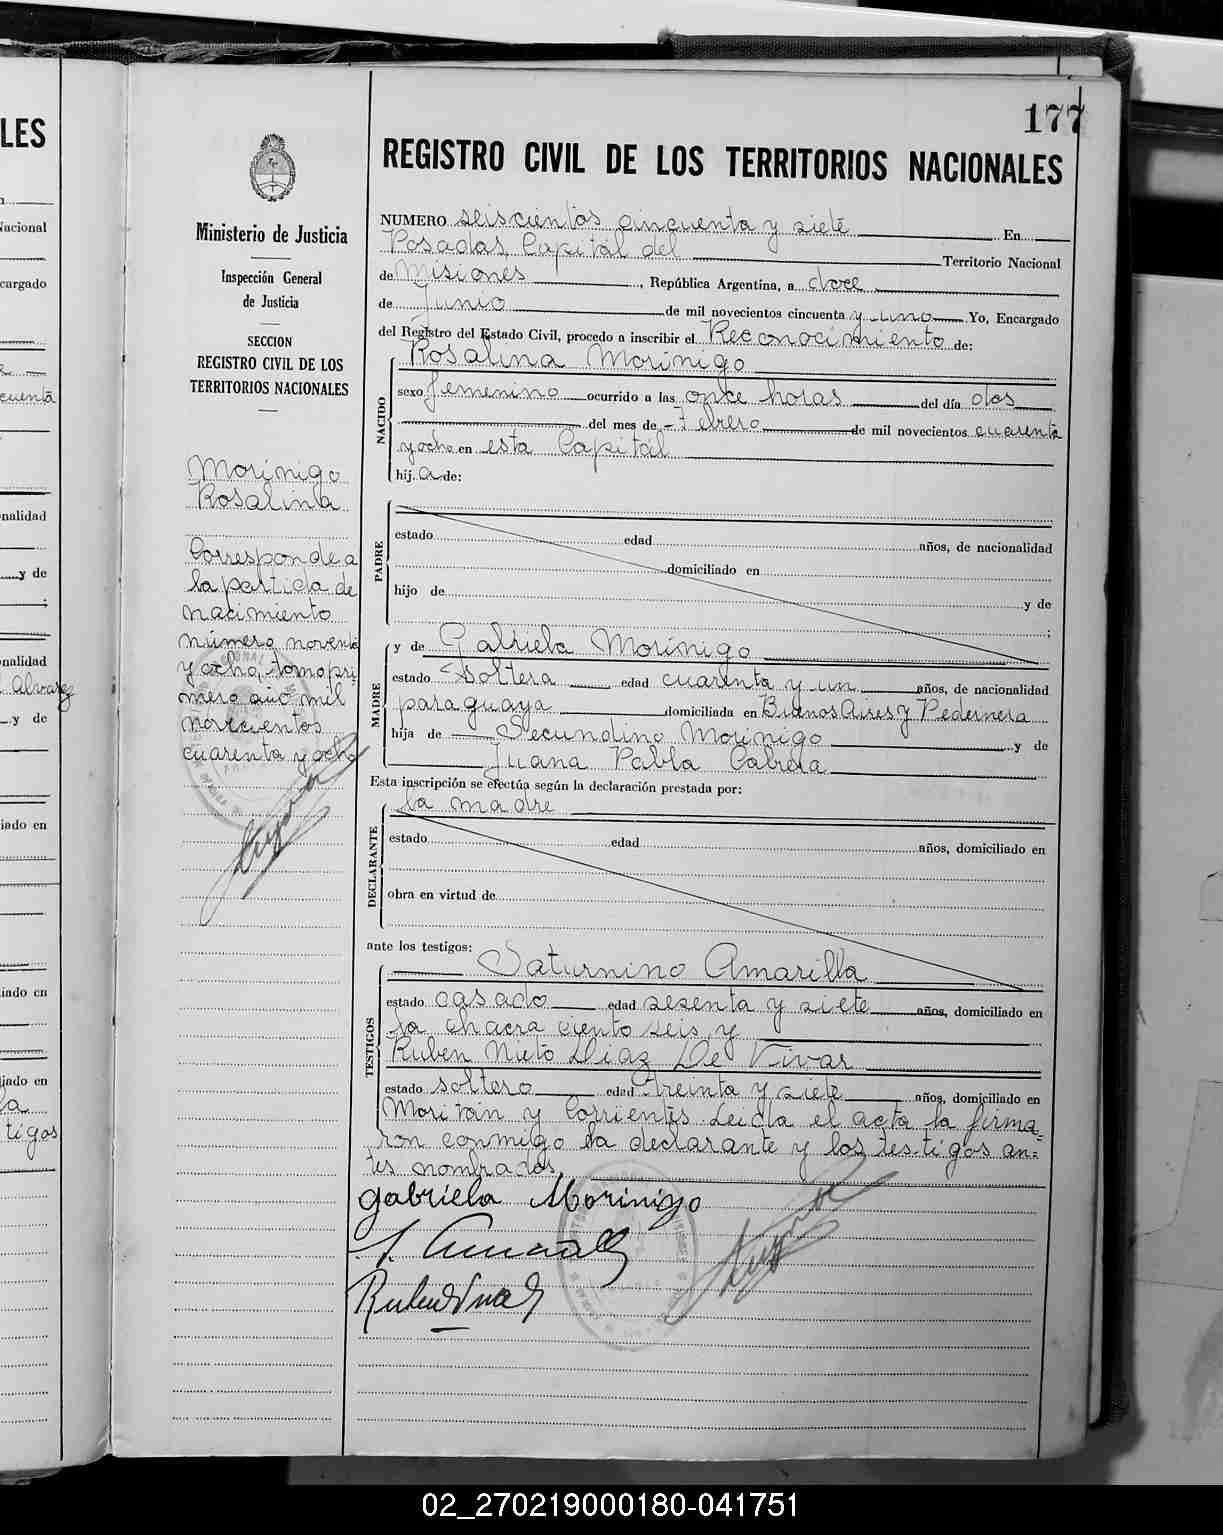 177
REGISTRO CIVIL DE LOS TERRITORIOS NACIONALES
NUMERO seiscientos cincuenta y siete En
Posadas, Capital del Territorio Nacional
de Misiones, República Argentina, a doce
de Junio de mil novecientos cincuenta y uno Yo, Encargado
del Registro del Estado Civil, procedo a inscribir el Reconocimiento de:
Rosalina Morinigo
NACIDO
sexo femenino ocurrido a las once horas del día dos
del mes de Febrero de mil novecientos cuarenta
y ocho en esta Capital
hija de:
PADRE
estado edad años, de nacionalidad
domiciliado en
hijo de y de
;
y de Gabriela Morinigo
MADRE
estado Soltera edad cuarenta y un años, de nacionalidad
paraguaya domiciliada en Buenos Aires y Pedernera
hija de Secundino Morinigo y de
Juana Pabla Cabrera
Esta inscripción se efectúa según la declaración prestada por:
la madre
DECLARANTE
estado edad años, domiciliado en
obra en virtud de
ante los testigos:
Saturnino Amarilla
TESTIGOS
estado casado edad sesenta y siete años, domiciliado en
la chacra ciento seis y
Ruben Nieto Diaz De Vivar
estado soltero edad treinta y siete años, domiciliado en
y Corrientes. Leida el acta la firma=
ron conmigo la declarante y los testigos an=
tes nombrados.
Gabriela Morinigo
Ministerio de Justicia
Inspección General
de Justicia
SECCION
REGISTRO CIVIL DE LOS
TERRITORIOS NACIONALES
Morinigo
Rosalina
Corresponde a
la partida de
nacimiento
número noventa
y ocho, tomo pri
mero año mil
novecientos
cuarenta y ocho
LES
Nacional
cargado
cuenta
nalidad
y de
;
nalidad
Alvarez
y de
iado en
iado en
iado en
la
tigos
02_270219000180-041751